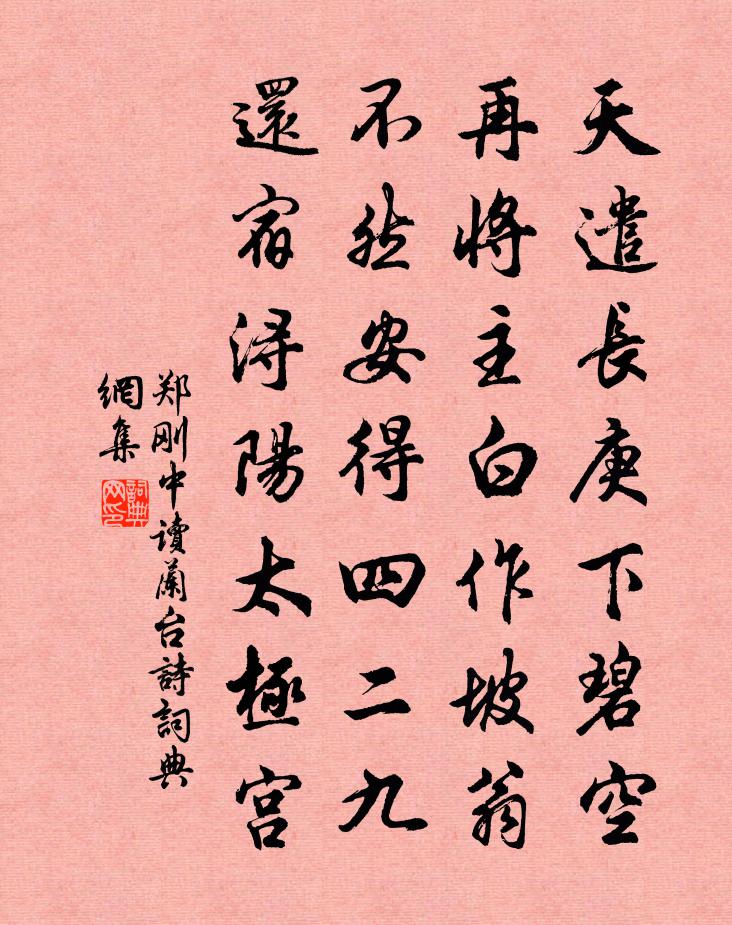 天遣長庚下碧空
再將主白作坡翁
不然安得四二九
還宿浔陽太極宮
郑刚中讀蘭台詩詞典
網集
詞典網印